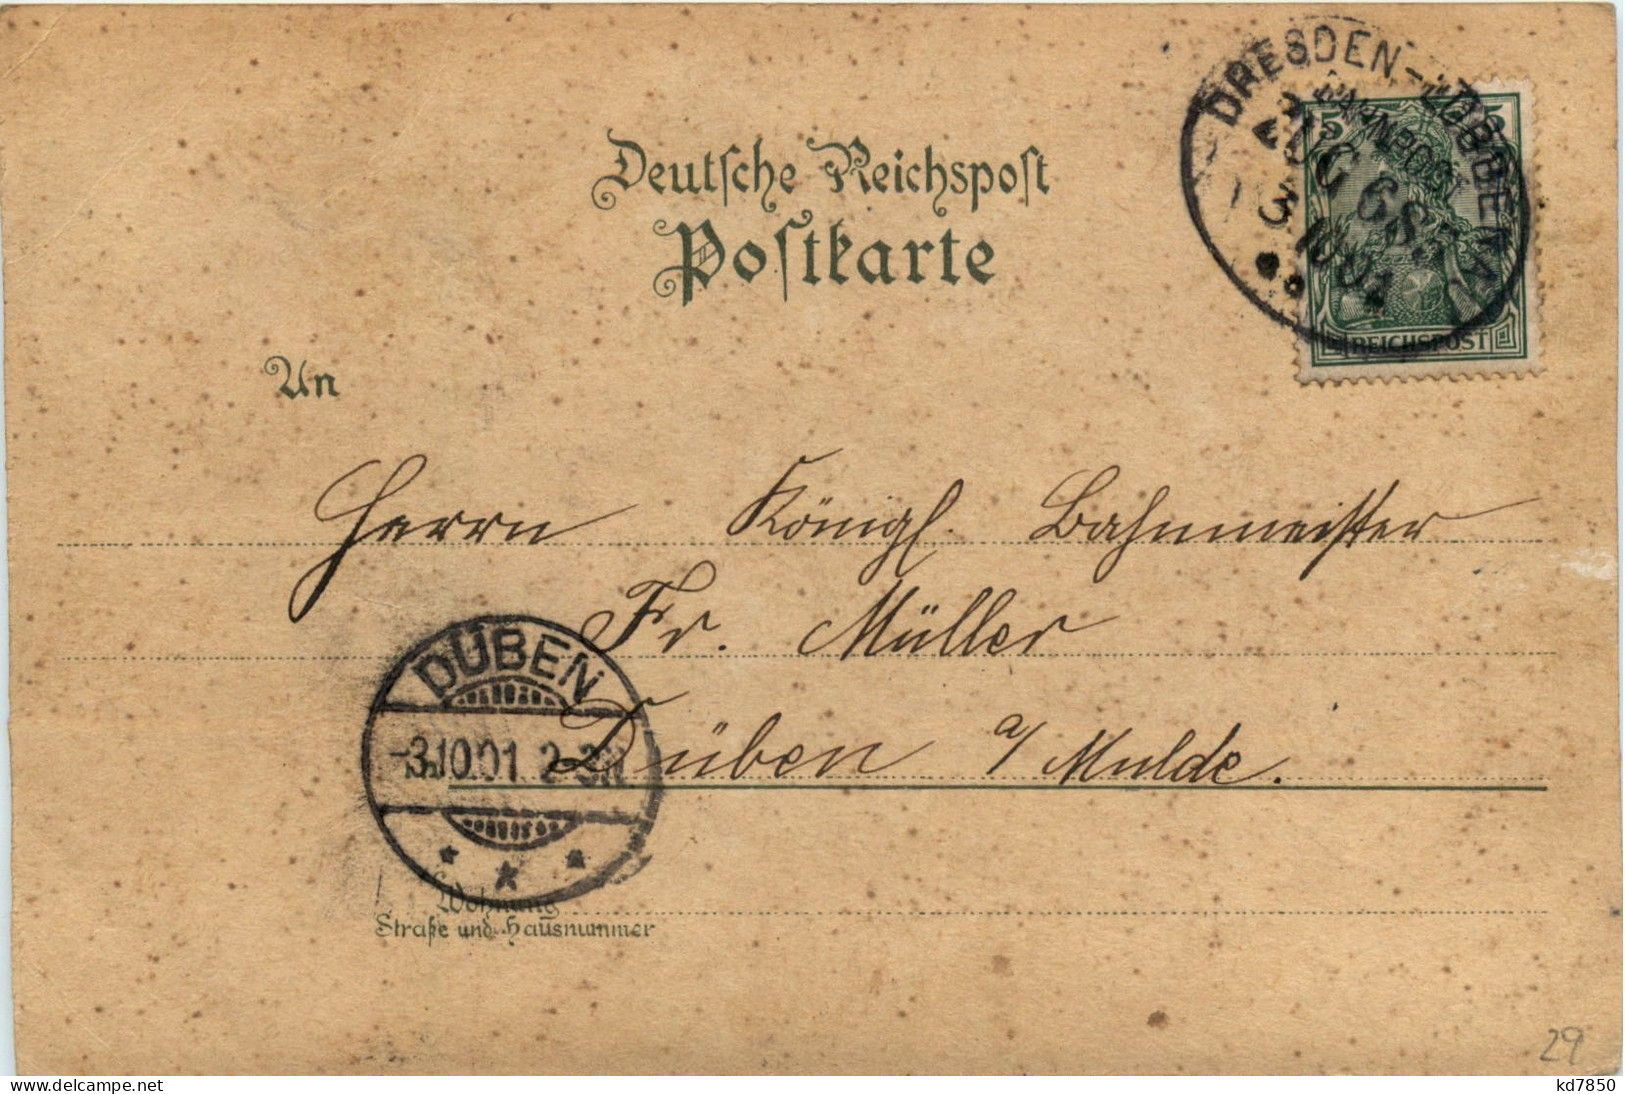 Deutsche Reichspost
Postkarte
DRESDEN-LÜBBENAU
BAHNPOST
ZUG 683
3 10 01
5 5
REICHSPOST
An
Herrn Königl. Bahnmeister
Fr. Müller
Düben a/ Mulde.
DÜBEN
-3.10.01 2-3N
Wohnung
Straße und Hausnummer
29
www.delcampe.net
kd7850